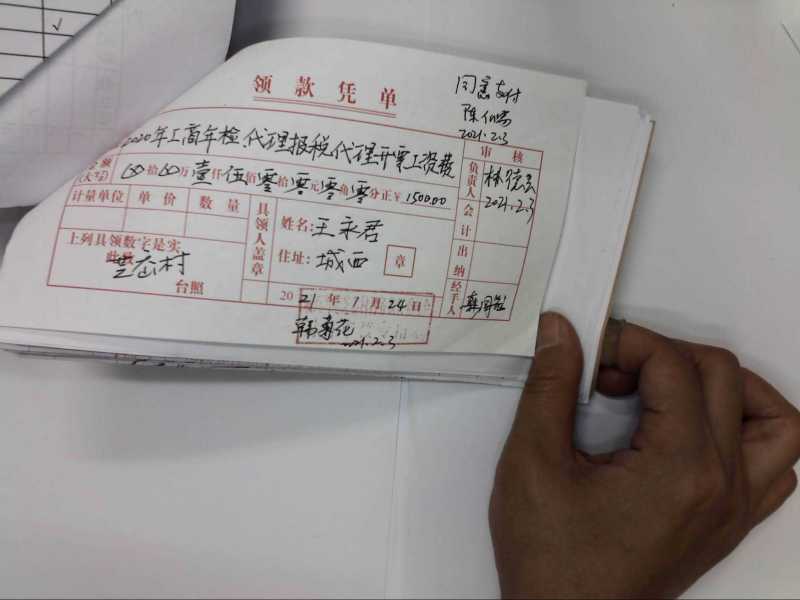 领款凭单
同意支付
2021.2.3
2020年工商年检代理报税代理开票工资费
审核
金额(大写) 拾 万壹仟伍佰零拾零元零角零分正¥1500.00
负责人
2021.2.3
计量单位 单价 数量
会计
具领人盖章
姓名:王永君
住址:城西
章
上列具领数字是实
此致
出纳
台照
经手人
2021年1月24日
韩菊花
2021.2.3